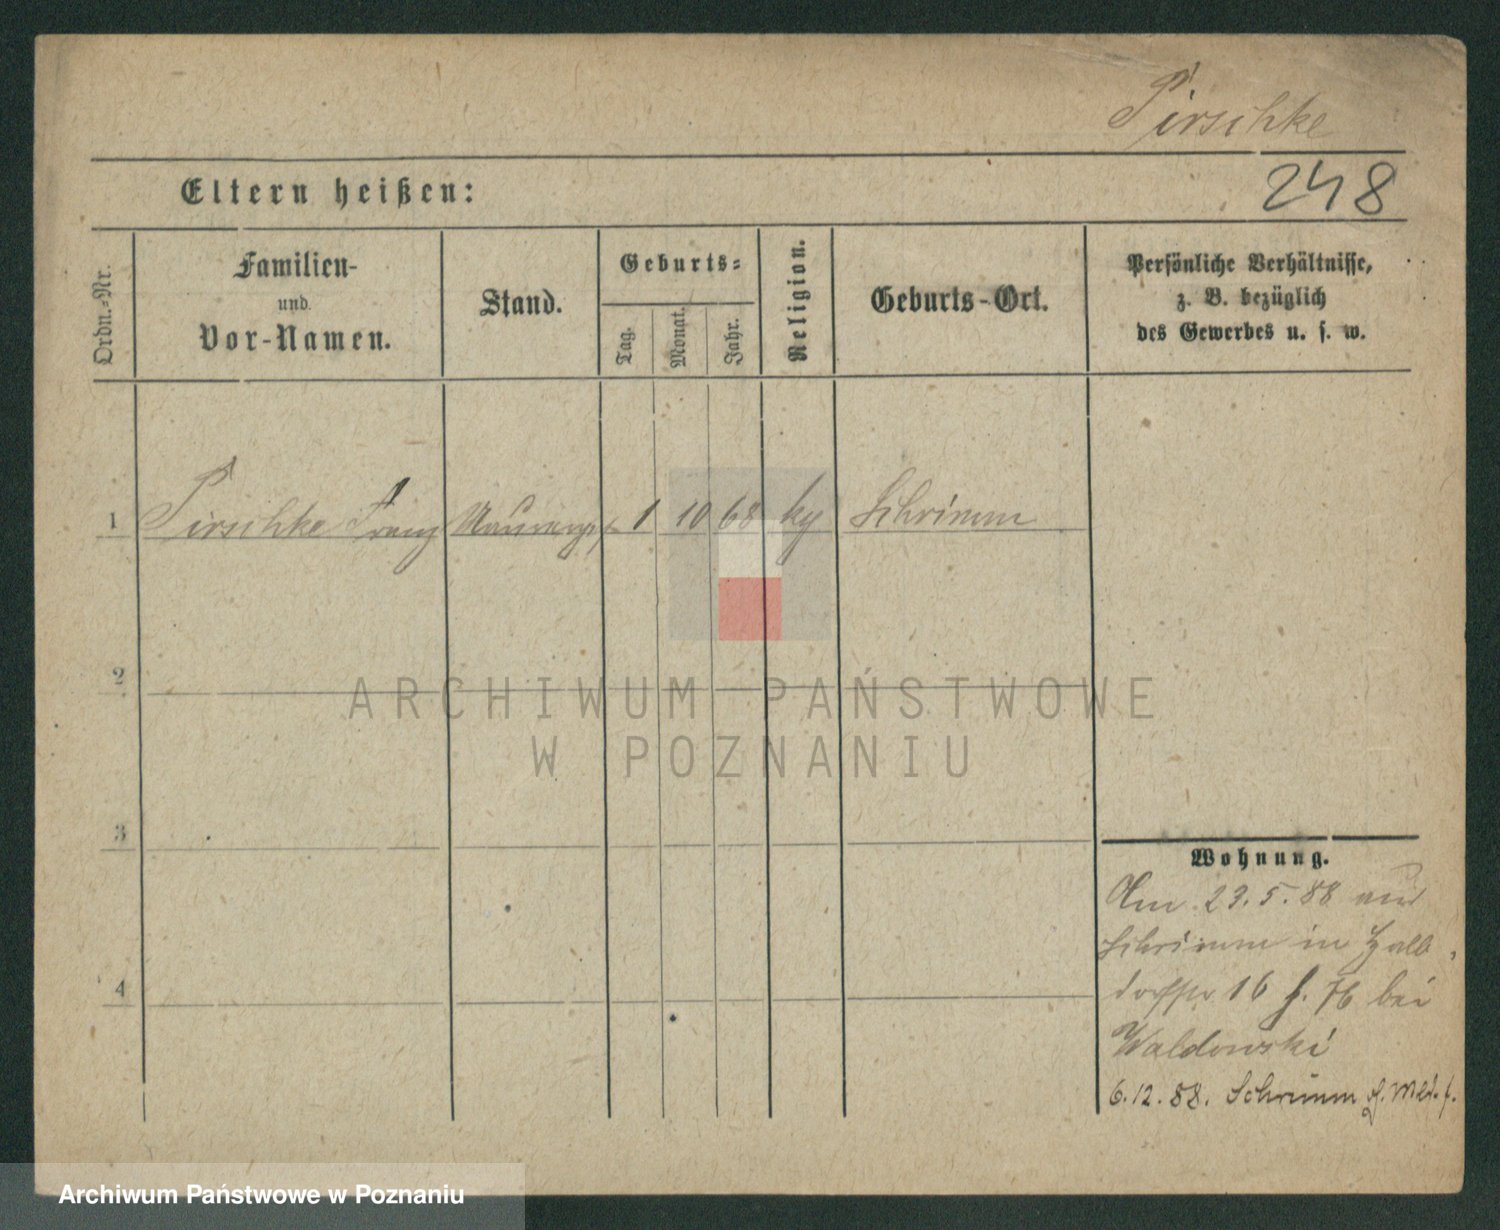 Pirschke
248
Eltern heißen:
Ordn.-Nr.
Familien-
und
Vor-Namen.
Stand.
Geburts-
Tag.
Monat.
Jahr.
Religion.
Geburts-Ort.
Persönliche Verhältnisse,
z. B. bezüglich
des Gewerbes u. s. w.
1 Pirschke Franz 1 10 68 Schrimm
2
ARCHIWUM PAŃSTWOWE
W POZNANIU
3
Wohnung.
Am 23.5.88 aus
Schrimm in Halb
dorfstr 16 H. bei
4
Waldowski
6.12.88. Schrimm
Archiwum Państwowe w Poznaniu